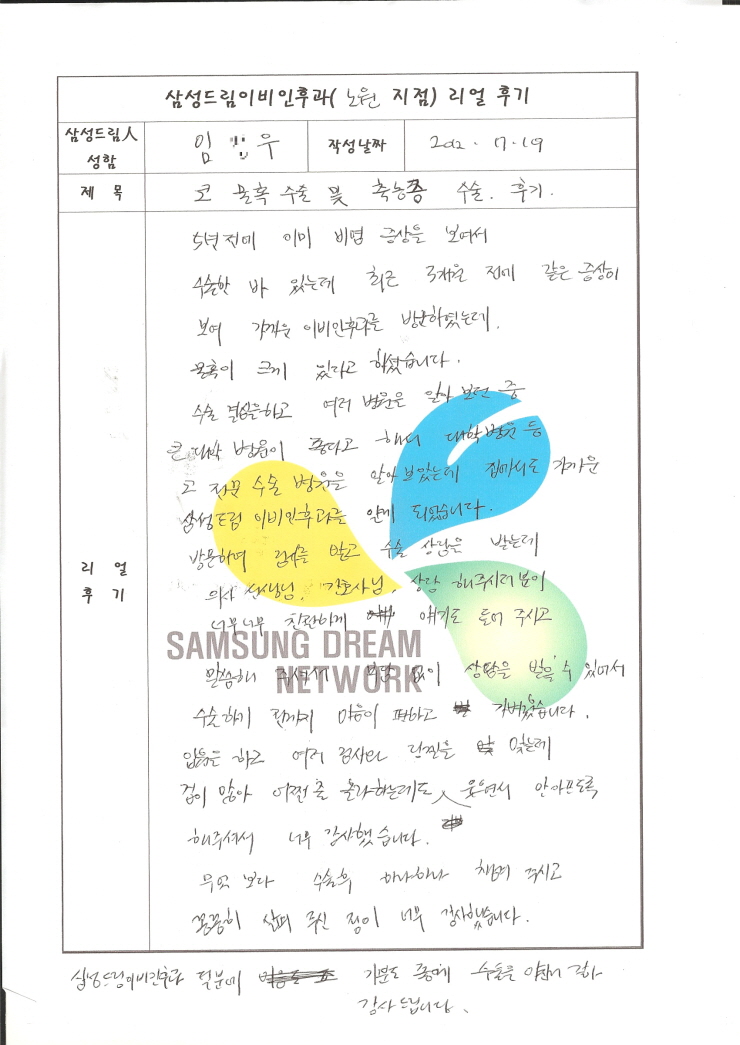 삼성드림이비인후과( 노원 지점) 리얼 후기
삼성드림人
성함
임 우
작성날짜
2012. 7. 19
제 목
코 물혹 수술 및 축농증 수술. 후기.
5년전에 이미 비염 증상을 보여서
수술한 바 있는데 최근 3개월 전에 같은 증상이
보여 가까운 이비인후과를 방문하였는데.
물혹이 크게 있다고 하셨습니다.
수술 결심을하고 여러 병원은 알아 보던 중
큰 대학 병원이 좋다고 해서 대학병원 등
코 전문 수술 병원을 알아 보았는데 집에서도 가까운
삼성드림 이비인후과를 알게 되었습니다.
방문하여 검사를 받고 수술 상담을 받는데
의사 선생님, 간호사님, 상담 해주시러 분이
너무너무 친절하게 얘기도 들어 주시고
말씀해 주셔서 부담 없이 상담을 받을 수 있어서
수술하기 전까지 마음이 편하고 가벼웠습니다.
입원을 하고 여러 검사와 링겔을 맞는데
겁이 많아 어쩐줄 몰라하는데도 웃으면서 안아프도록
해주셔서 너무 감사했습니다.
무엇 보다 수술후 하나하나 챙겨 주시고
꼼꼼히 살펴 주신 점이 너무 감사했습니다.
리 얼
후 기
SAMSUNG DREAM
NETWORK
삼성드림이비인후과 덕분에 기분도 좋게 수술을
감사드립니다.